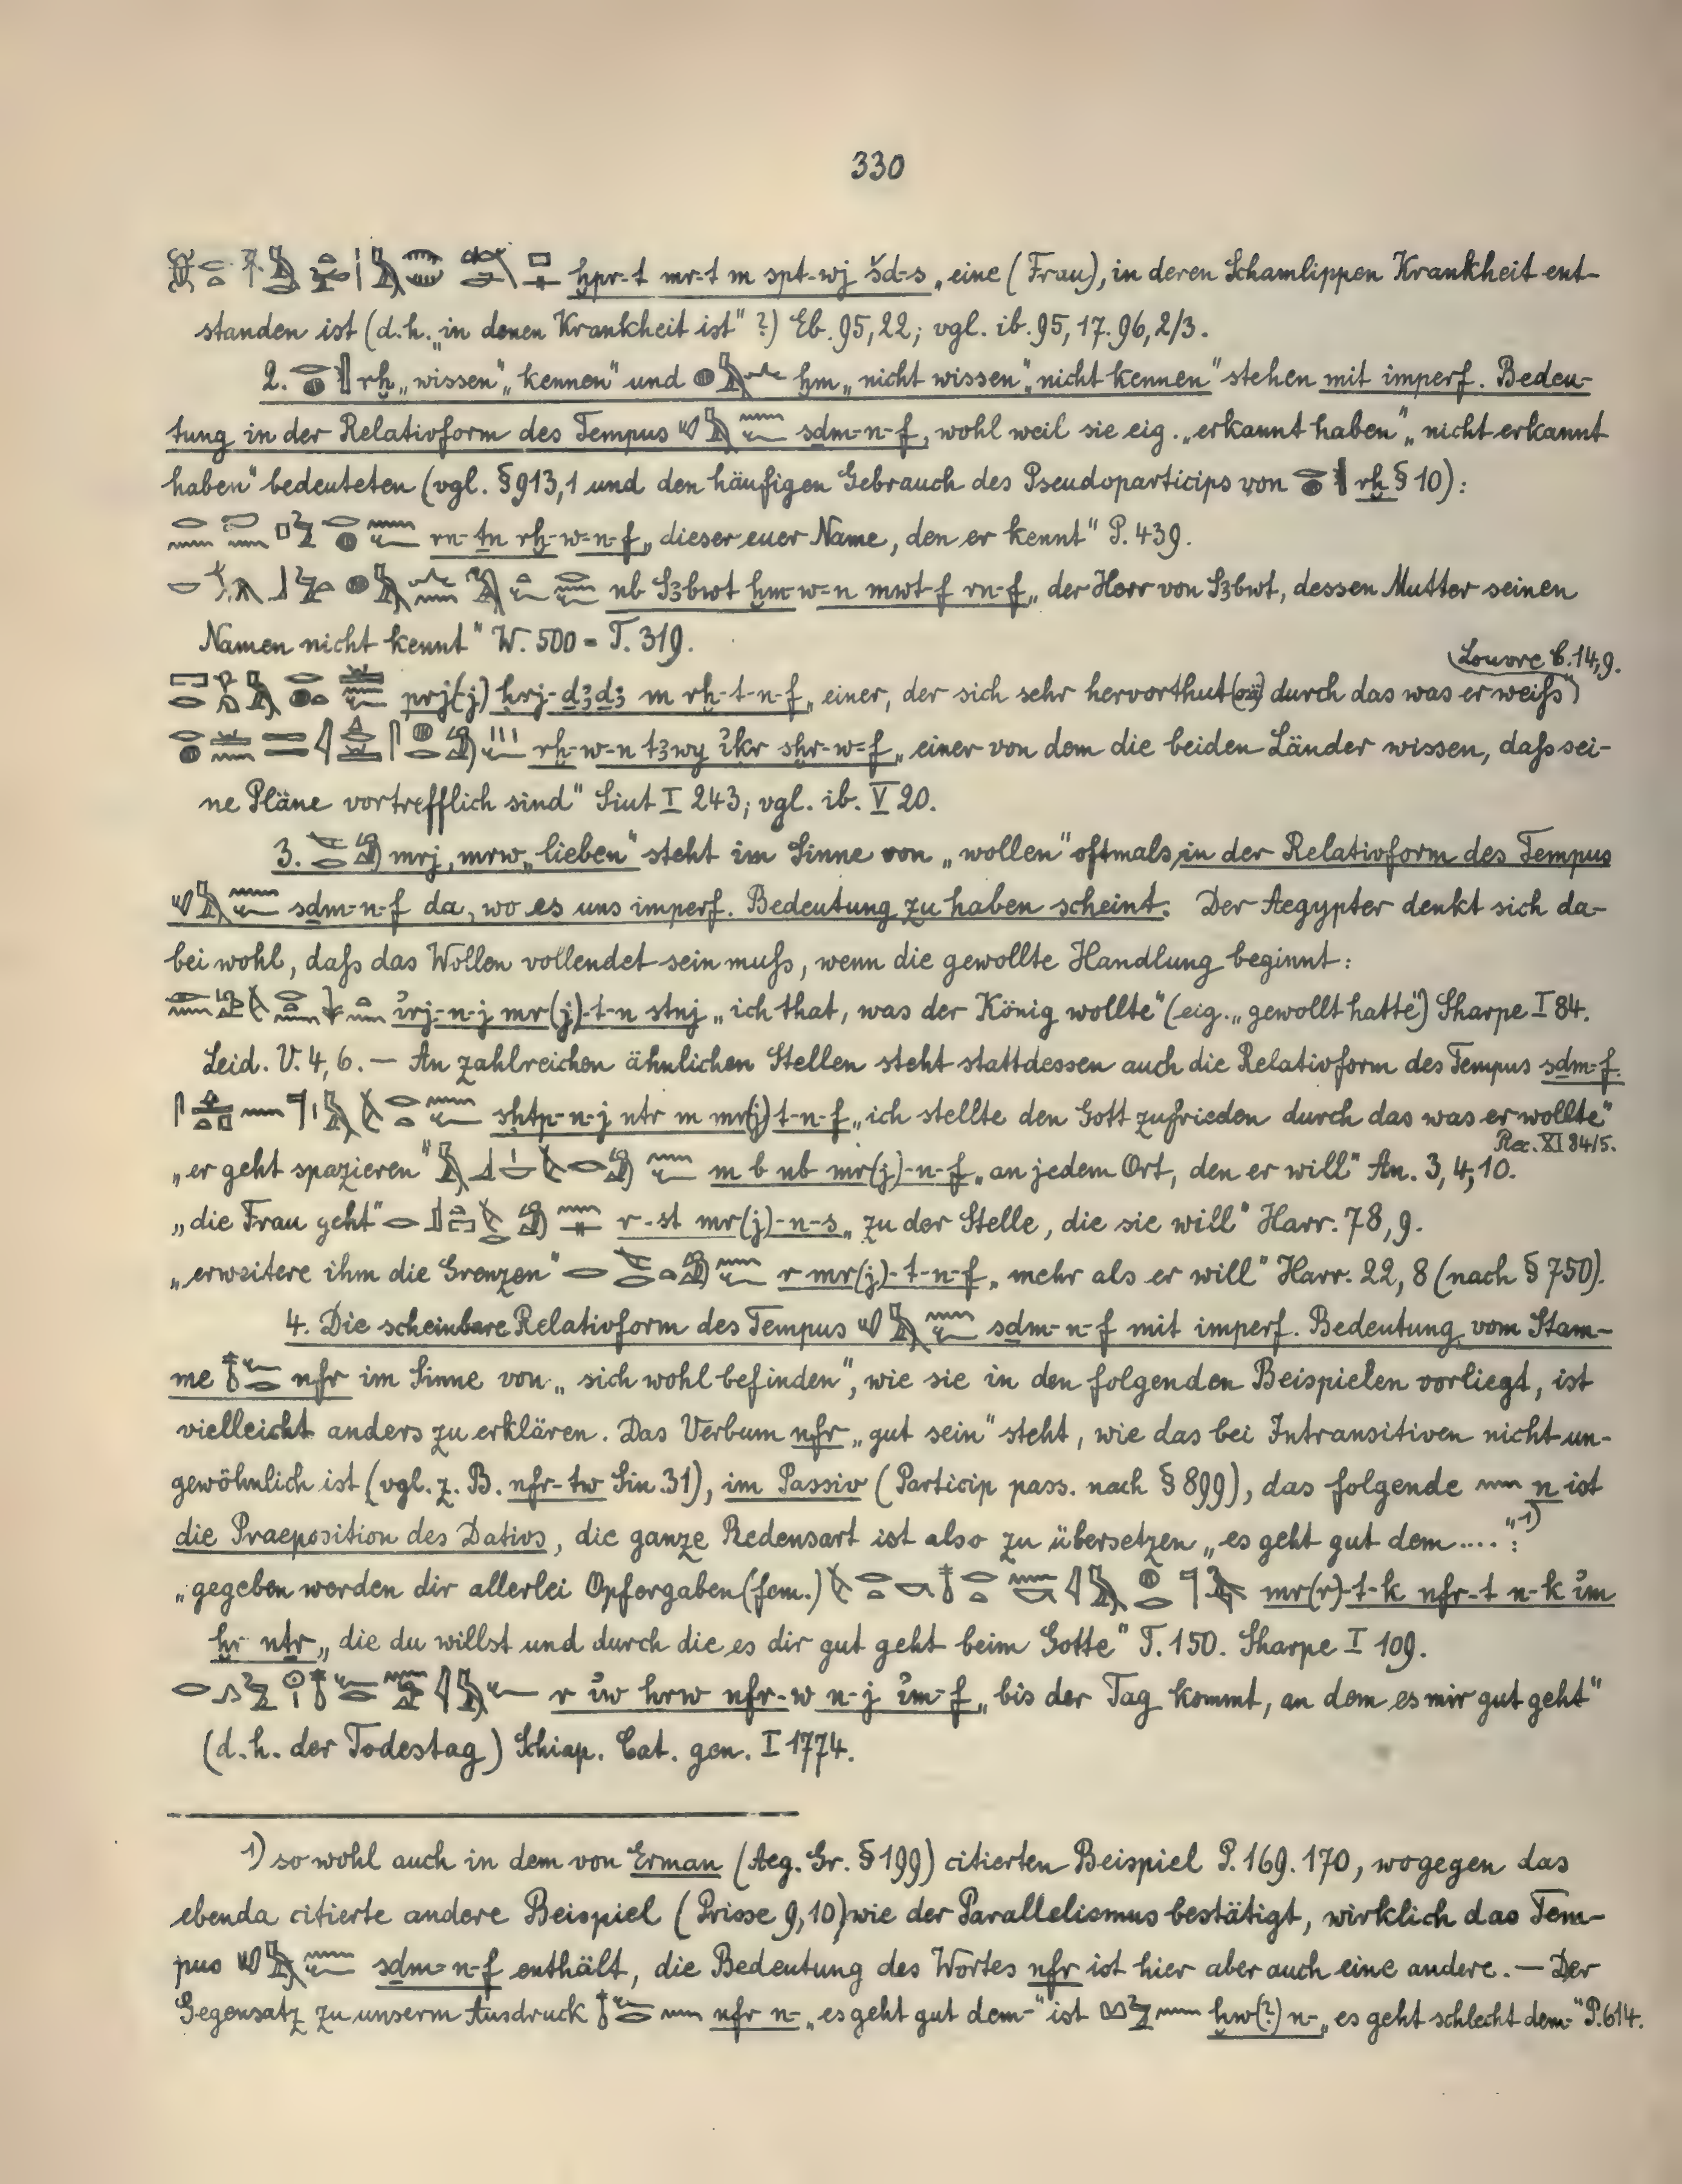 330
ḫpr-t mr-t m spt-wj šd-s „eine (Frau), in deren Schamlippen Krankheit ent-
standen ist (d.h. „in denen Krankheit ist" ?) Eb. 95,22; vgl. ib. 95,17. 96,2/3.
2. rḫ „wissen", „kennen" und ḫm „nicht wissen", „nicht kennen" stehen mit imperf. Bedeu-
tung in der Relativform des Tempus sḏm-n-f, wohl weil sie eig. „erkannt haben", „nicht erkannt
haben" bedeuteten (vgl. § 913,1 und den häufigen Gebrauch des Pseudoparticips von rḫ § 10):
rn-ṯn rḫ-w-n-f „dieser euer Name, den er kennt" P. 439.
nb S3bwt ḫm-w-n mwt-f rn-f „der Herr von S3bwt, dessen Mutter seinen
Namen nicht kennt" W. 500 = T. 319.
Louvre C. 14,9.
prj(-j) ḥrj-ḏ3ḏ3 m rḫ-t-n-f „einer, der sich sehr hervorthut durch das was er weiſs")
rḫ-w-n t3wy ỉḳr sḫr-w-f „einer von dem die beiden Länder wissen, daſs sei-
ne Pläne vortrefflich sind" Siut I 243; vgl. ib. V 20.
3. mrj, mrw „lieben" steht im Sinne von „wollen" oftmals in der Relativform des Tempus
sḏm-n-f da, wo es uns imperf. Bedeutung zu haben scheint. Der Aegypter denkt sich da-
bei wohl, daſs das Wollen vollendet sein muſs, wenn die gewollte Handlung beginnt:
ỉrj-n-j mr(j)-t-n stnj „ich that, was der König wollte" (eig. „gewollt hatte") Sharpe I 84.
Leid. V. 4, 6. — An zahlreichen ähnlichen Stellen steht stattdessen auch die Relativform des Tempus sḏm-f.
sḥtp-n-j nṯr m mr(j)t-n-f „ich stellte den Gott zufrieden durch das was er wollte"
Rec. XI 84/5.
„er geht spazieren" m b nb mr(j)-n-f „an jedem Ort, den er will" An. 3, 4, 10.
„die Frau geht" r-st mr(j)-n-s „zu der Stelle, die sie will" Harr. 78, 9.
„erweitere ihm die Grenzen" r mr(j)-t-n-f „mehr als er will" Harr. 22, 8 (nach § 750).
4. Die scheinbare Relativform des Tempus sḏm-n-f mit imperf. Bedeutung vom Stam-
me nfr im Sinne von „sich wohl befinden", wie sie in den folgenden Beispielen vorliegt, ist
vielleicht anders zu erklären. Das Verbum nfr „gut sein" steht, wie das bei Intransitiven nicht un-
gewöhnlich ist (vgl. z. B. nfr-tw Sin. 31), im Passiv (Particip pass. nach § 899), das folgende n ist
die Praeposition des Dativs, die ganze Redensart ist also zu übersetzen „es geht gut dem ....":¹⁾
„gegeben werden dir allerlei Opfergaben (fem.) mr(r)-t-k nfr-t n-k ỉm
ḫr nṯr „die du willst und durch die es dir gut geht beim Gotte" T. 150. Sharpe I 109.
r ỉw hrw nfr-w n-j ỉm-f „bis der Tag kommt, an dem es mir gut geht"
(d. h. der Todestag) Schiap. Cat. gen. I 1774.
¹⁾ so wohl auch in dem von Erman (Aeg. Gr. § 199) citierten Beispiel P. 169. 170, wogegen das
ebenda citierte andere Beispiel (Prisse 9, 10) wie der Parallelismus bestätigt, wirklich das Tem-
pus sḏm-n-f enthält, die Bedeutung des Wortes nfr ist hier aber auch eine andere. — Der
Gegensatz zu unserm Ausdruck nfr n- „es geht gut dem-" ist ḥw(?) n- „es geht schlecht dem-" P. 614.